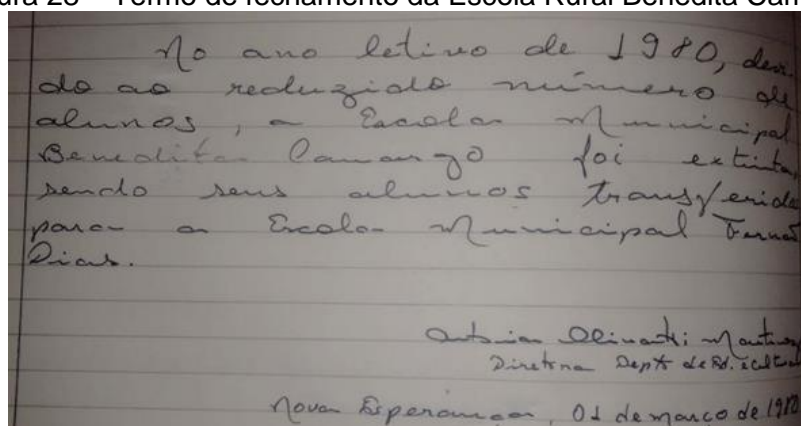 ura 28 – Termo de fechamento da Escola Rural Benedita Cam
No ano letivo de 1980, devi
do ao reduzido número de
alunos, a Escola Municipal
Benedita Camargo foi extinta,
sendo seus alunos transferido
para a Escola Municipal Fernão
Dias.
Antonia Martins
Diretora Deptº de Ed. e Cultura
Nova Esperança, 01 de março de 1980